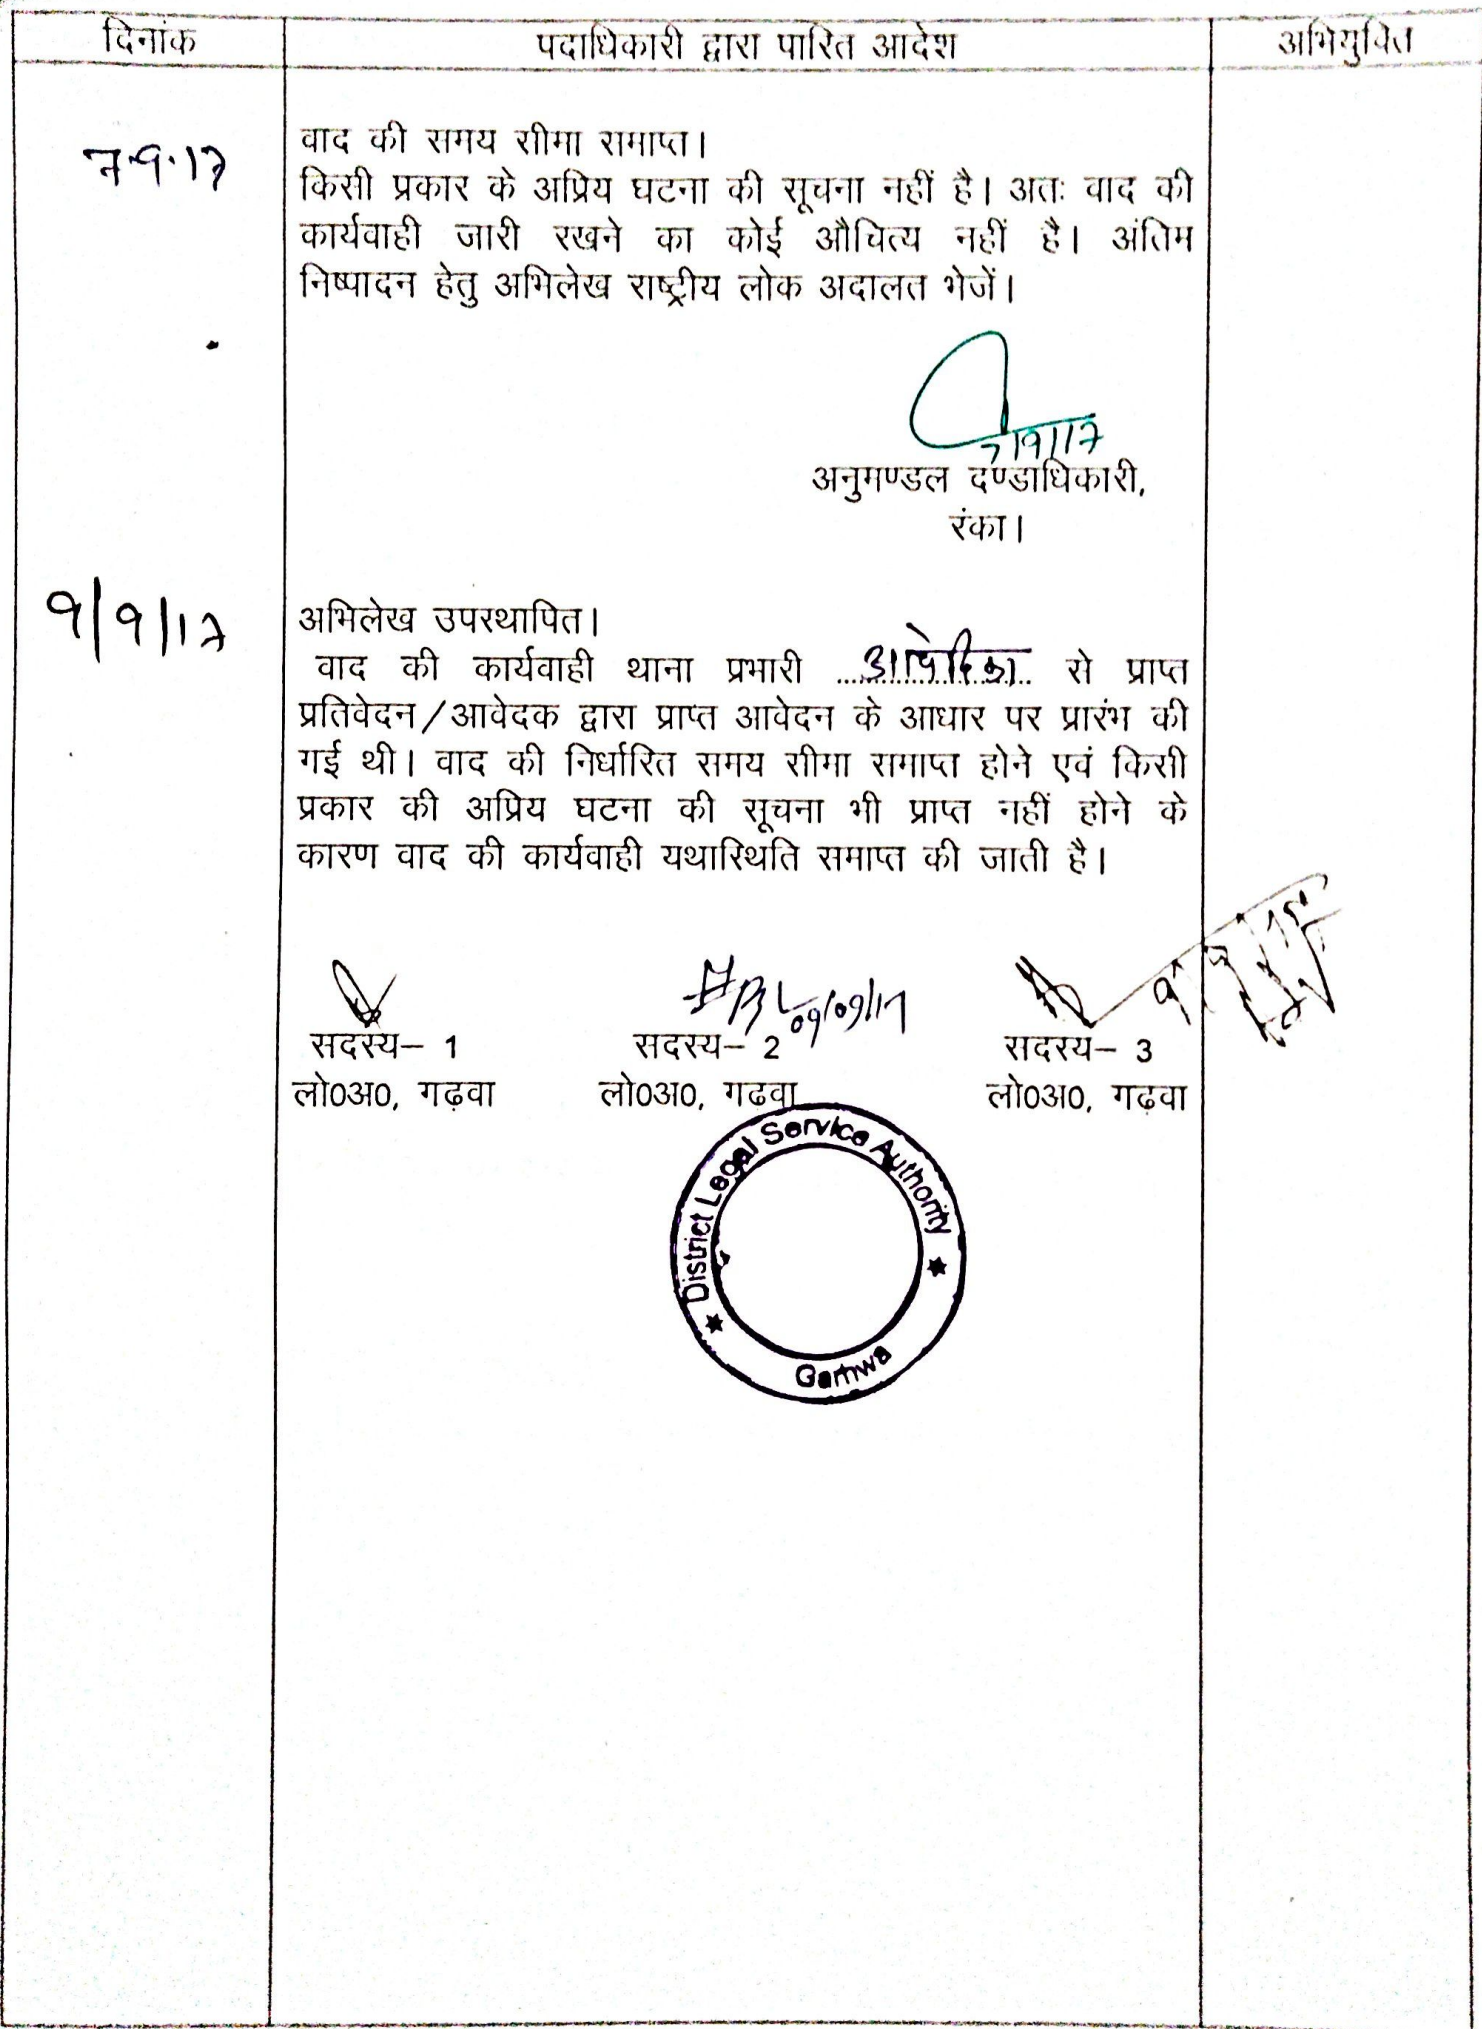 दिनांक पदाधिकारी द्वारा पारित आदेश अभियुक्ति
7.9.17 वाद की समय सीमा समाप्त।
किसी प्रकार के अप्रिय घटना की सूचना नहीं है। अतः वाद की
कार्यवाही जारी रखने का कोई औचित्य नहीं है। अंतिम
निष्पादन हेतु अभिलेख राष्ट्रीय लोक अदालत भेजें।
7/9/17
अनुमण्डल दण्डाधिकारी,
रंका।
9/9/17 अभिलेख उपस्थापित।
वाद की कार्यवाही थाना प्रभारी से प्राप्त
प्रतिवेदन/आवेदक द्वारा प्राप्त आवेदन के आधार पर प्रारंभ की
गई थी। वाद की निर्धारित समय सीमा समाप्त होने एवं किसी
प्रकार की अप्रिय घटना की सूचना भी प्राप्त नहीं होने के
कारण वाद की कार्यवाही यथास्थिति समाप्त की जाती है।
09/09/17
सदस्य– 1 सदस्य– 2 सदस्य– 3
लो0अ0, गढ़वा लो0अ0, गढवा लो0अ0, गढ़वा
District Legal Service Authority
Garhwa